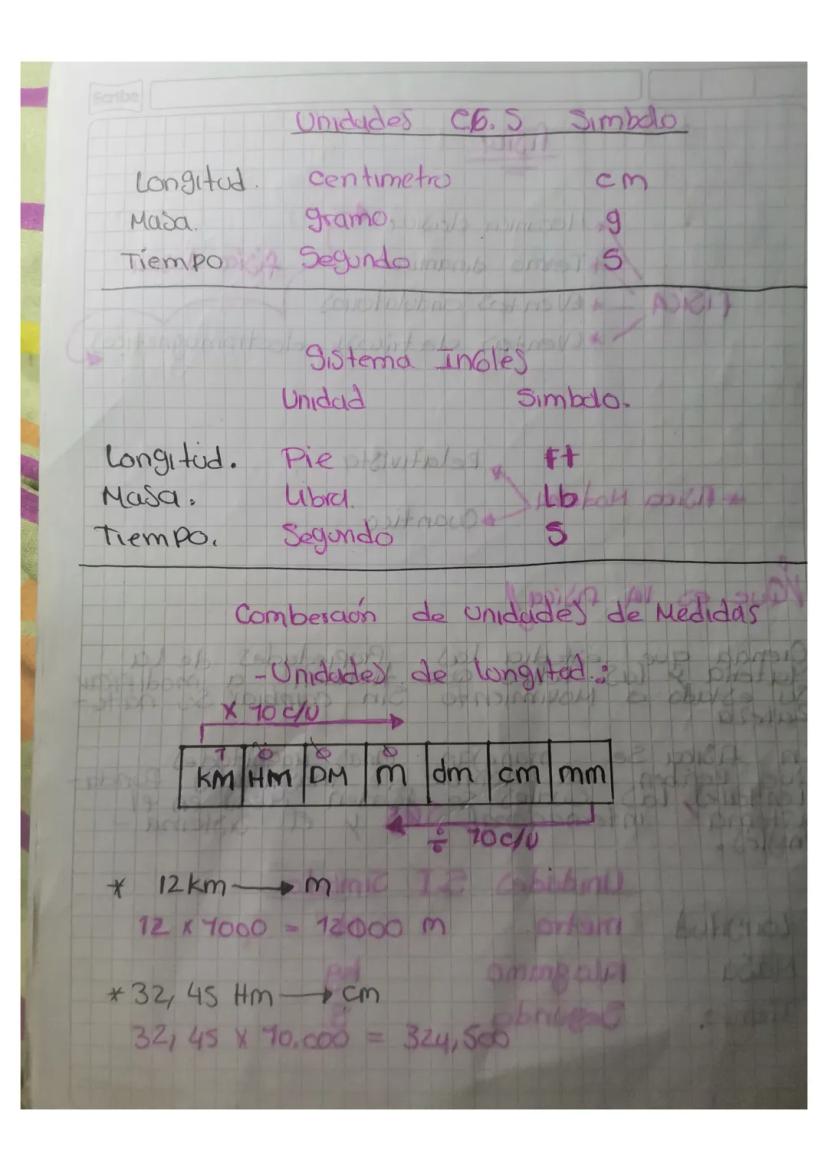 Scribe
Unidades CG.S Simbolo
Longitud. centimetro cm
Masa. gramo. g
Tiempo Segundo S
Sistema Inglés
Unidad Simbolo.
Longitud. Pie ft
Masa. Libra. Lb
Tiempo. Segundo S
Comberción de unidades de Medidas
-Unidades de longitud.:
X 10 c/u
1 0 0 0
KM HM DM m dm cm mm
÷ 10 c/u
* 12 km → m
12 x 1000 = 12000 m
* 32,45 Hm → cm
32,45 x 10.000 = 324,500